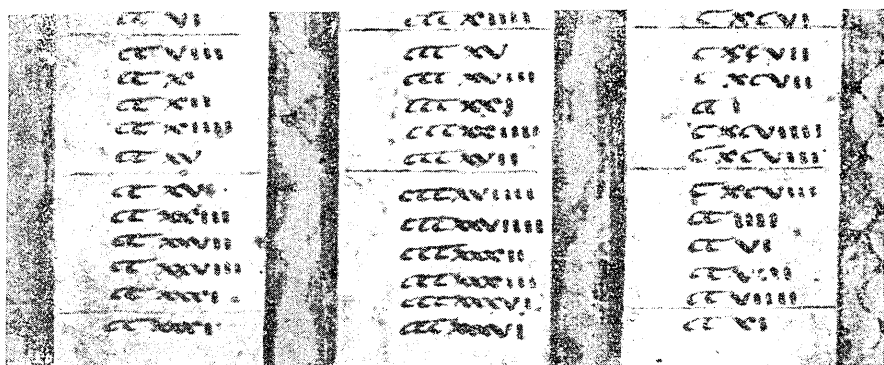 cc vi
cc viii
cc x
cc xii
cc xiiii
cc xv
cc xxiii
cc xxvii
cc xxviii
cc xxxi
ccc xiiii
ccc xv
ccc xviii
ccc xxi
ccc xxiiii
ccc xvii
ccc xviiii
ccc xxviiii
ccc xxxii
ccc xxxiii
ccc xxxvi
c xcvi
c xcvii
c xcvii
cc i
c xcviiii
c xcviii
c xcviii
cc iiii
cc vi
cc viii
cc viiii
cc xi